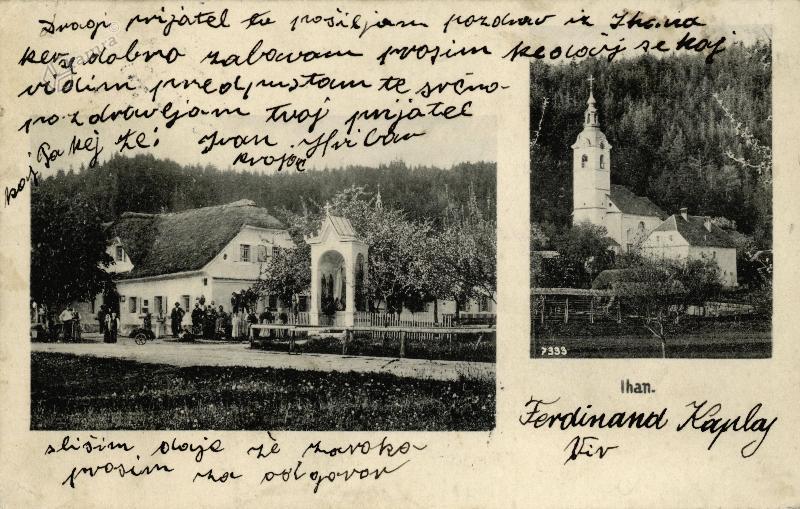 Dragi prijatel tu pošiljam pozdrav iz Ihana
ker se dobro zabavam prosim ke se kaj
vidim predpustam te srčno
pozdravljam tvoj prijatel
Ivan Hribar
kroječ
koj Pa kej že:
7333
Ihan.
Ferdinand Kaplaj
Vir
slišim daje že zaroka
prosim za odgovor